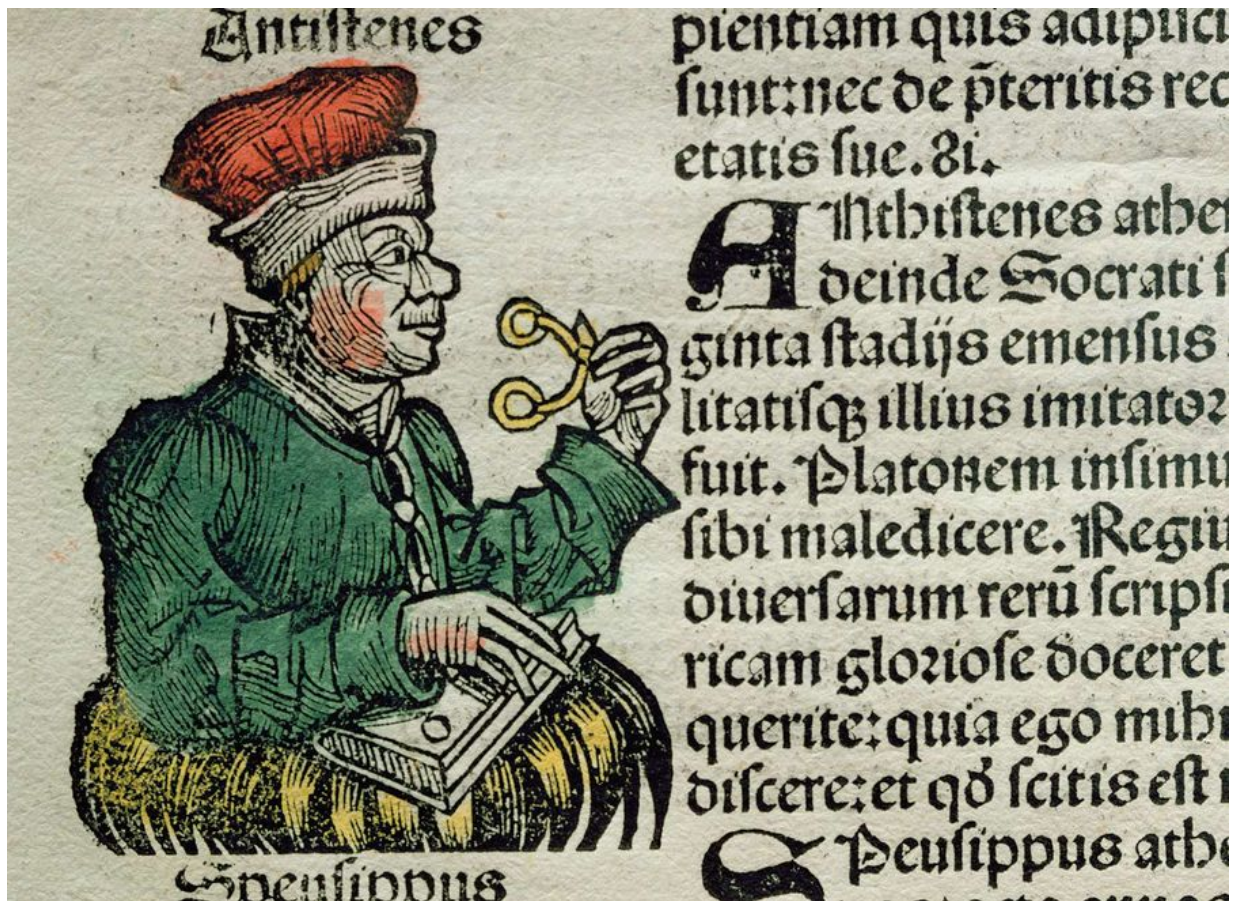 Antistenes
pientiam quis adipisci
sunt:nec de p̄teritis rec
etatis sue.8i.
ANthistenes athen
deinde Socrati s
ginta stadijs emensus
litatisqꝫ illius imitator
fuit. Platonem insimu
sibi maledicere. Regiū
diuersarum rerū scripsi
ricam gloriose doceret
querite:quia ego mihi
discere:et qd̓ scitis est
SPeusippus athe
Speusippus